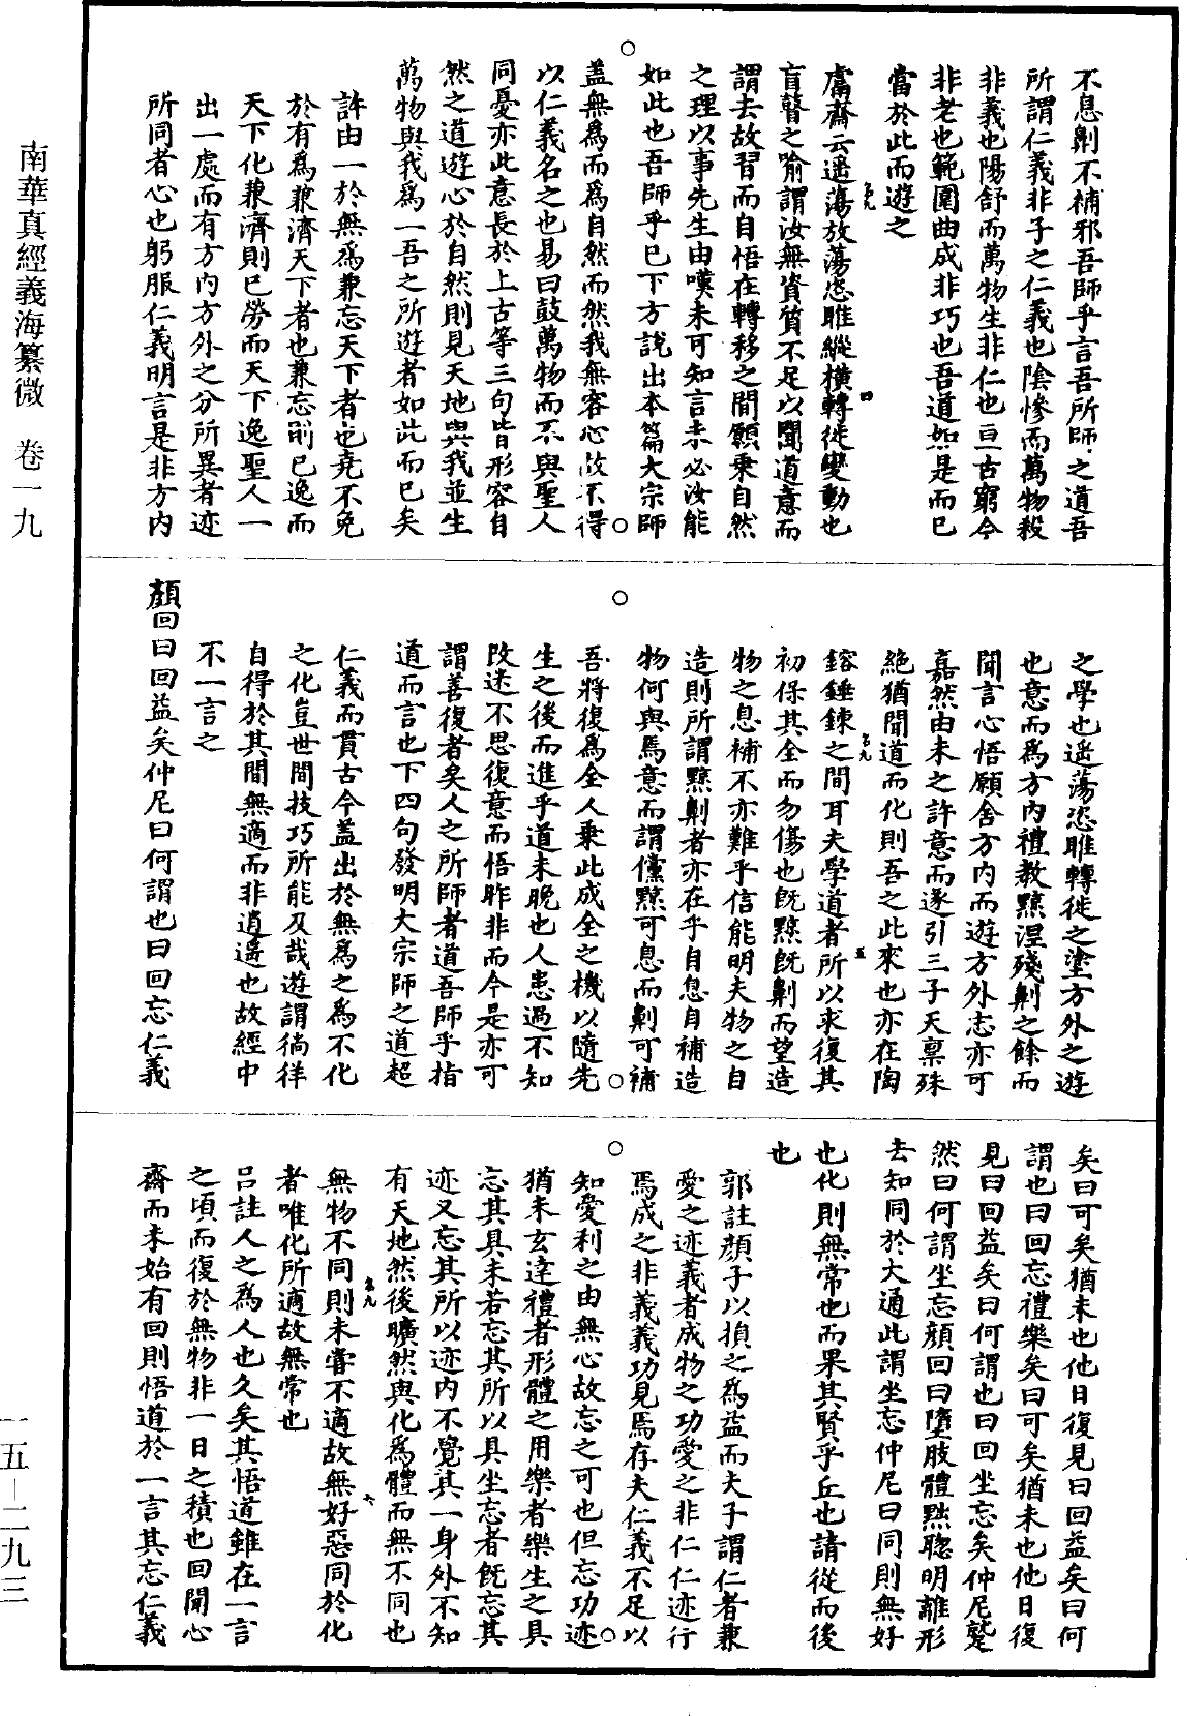 南華真經義海纂微　卷一九
一五—二九三
不息劓不補邪吾師乎言吾所師之道吾
所謂仁義非子之仁義也陰慘而萬物殺
非義也陽舒而萬物生非仁也亘古窮今
非老也範圍曲成非巧也吾道如是而已
當於此而遊之
鬳齋云遥蕩放蕩恣睢縱横轉徙變動也
盲瞽之喻謂汝無資質不足以聞道意而
謂去故習而自悟在轉移之間願乗自然
之理以事先生由嘆未可知言未必汝能
如此也吾師乎已下方說出本篇大宗師
盖無爲而爲自然而然我無容心故不得
以仁義名之也易曰鼓萬物而不與聖人
同憂亦此意長於上古等三句皆形容自
然之道遊心於自然則見天地與我並生
萬物與我爲一吾之所遊者如此而已矣
許由一於無爲兼忘天下者也堯不免
於有爲兼濟天下者也兼忘則已逸而
天下化兼濟則已勞而天下逸聖人一
出一處而有方内方外之分所異者迹
所同者心也躬服仁義明言是非方内
之學也遥蕩恣睢轉徙之塗方外之遊
也意而爲方内禮教黥涅殘劓之餘而
聞言心悟願舍方内而遊方外志亦可
嘉然由未之許意而遂引三子天禀殊
絶猶聞道而化則吾之此來也亦在陶
鎔錘鍊之間耳夫學道者所以求復其
初保其全而勿傷也旣黥旣劓而望造
物之息補不亦難乎信能明夫物之自
造則所謂黥劓者亦在乎自息自補造
物何與焉意而謂儻黥可息而劓可補
吾將復爲全人乗此成全之機以隨先
生之後而進乎道未晚也人患過不知
改迷不思復意而悟昨非而今是亦可
謂善復者矣人之所師者道吾師乎指
道而言也下四句發明大宗師之道超
仁義而貫古今盖出於無爲之爲不化
之化豈世間技巧所能及哉遊謂徜徉
自得於其間無適而非逍遥也故經中
不一言之
顔回曰回益矣仲尼曰何謂也曰回忘仁義
矣曰可矣猶未也他日復見曰回益矣曰何
謂也曰回忘禮樂矣曰可矣猶未也他日復
見曰回益矣曰何謂也曰回坐忘矣仲尼蹵
然曰何謂坐忘顔回曰墮肢體黜聰明離形
去知同於大通此謂坐忘仲尼曰同則無好
也化則無常也而果其賢乎丘也請從而後
也
郭註顔子以損之爲益而夫子謂仁者兼
愛之迹義者成物之功愛之非仁仁迹行
焉成之非義義功見焉存夫仁義不足以
知愛利之由無心故忘之可也但忘功迹
猶未玄達禮者形體之用樂者樂生之具
忘其具未若忘其所以具坐忘者旣忘其
迹又忘其所以迹内不覺其一身外不知
有天地然後曠然與化爲體而無不同也
無物不同則未嘗不適故無好惡同於化
者唯化所適故無常也
吕註人之爲人也久矣其悟道雖在一言
之頃而復於無物非一日之積也回聞心
齋而未始有回則悟道於一言其忘仁義